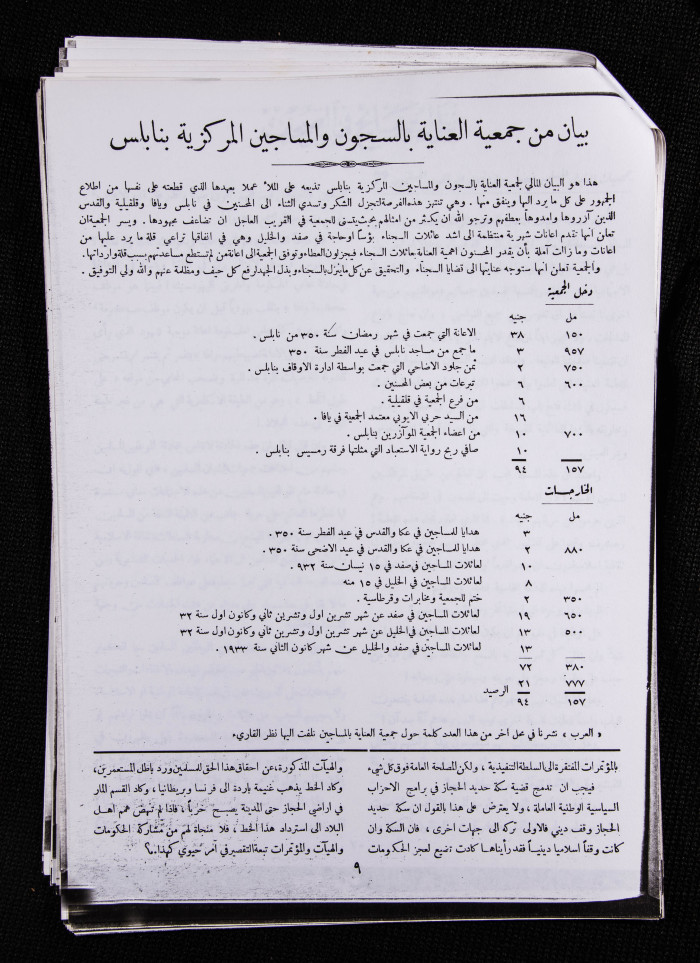 بيان من جمعية العناية بالسجون والمساجين المركزية بنابلس
هذا هو البيان المالي لجمعية العناية بالسجون والمساجين المركزية بنابلس تذيعه على الملأ عملا بعهدها الذي قطعته على نفسها من اطلاع
الجمهور على كل ما يرد اليها وينفق منها . وهي تنتهز هذه الفرصة لتجزل الشكر وتسدي الثناء الى المحسنين في نابلس ويافا وقلقيلية والقدس
الذين آزروها وامدوها بعطفهم وترجو الله ان يكثر من امثالهم بحيث يتسنى للجمعية في القريب العاجل ان تضاعف مجهودها . ويسر الجمعية ان
تعلن انها تقدم اعانات شهرية منتظمة الى اشد عائلات السجناء بؤساً او حاجة في صفد والخليل وهي في انفاقها تراعي قلة ما يرد عليها من
اعانات وما زالت آملة بأن يقدر المحسنون اهمية العناية بعائلات السجناء فيجزلون العطاء وتوفق الجمعية الى اعانة من لم تستطع مساعدتهم بسبب قلة وارداتها .
والجمعية تعلن انها ستوجه عنايتها الى قضايا السجناء والتحقيق عن كل ما ينزل بالسجناء وبذل الجهد لرفع كل حيف ومظلمة عنهم والله ولي التوفيق .
دخل الجمعية
مل جنيه
١٥٠ ٣٨ الاعانة التي جمعت في شهر رمضان سنة ٣٥٠ من نابلس .
٩٥٧ ٣ ما جمع من مساجد نابلس في عيد الفطر سنة ٣٥٠
٧٥٠ ٢ ثمن جلود الاضاحي التي جمعت بواسطة ادارة الاوقاف بنابلس .
٦٠٠ تبرعات من بعض المحسنين .
٦ من فرع الجمعية في قلقيلية .
١٦ من السيد حربي الايوبي معتمد الجمعية في يافا .
٧٠٠ ١٠ من اعضاء الجمعية الموآزرين بنابلس .
١٠ صافي ريح رواية الاستعباد التي مثلتها فرقة رمسيس بنابلس .
١٥٧ ٩٤
الخارجات
مل جنيه
٣ هدايا للمساجين في عكا والقدس في عيد الفطر سنة ٣٥٠ .
٨٨٠ ٢ هدايا للمساجين في عكا والقدس في عيد الاضحى سنة ٣٥٠ .
١٠ لعائلات المساجين في صفد في ١٥ نيسان سنة ٩٣٢ .
٨ لعائلات المساجين في الخليل في ١٥ منه
٣٥٠ ٢ ختم للجمعية ومخابرات وقرطاسية .
٦٥٠ ١٩ لعائلات المساجين في صفد عن شهر تشرين اول وتشرين ثاني وكانون اول سنة ٣٢
٥٠٠ ١٣ لعائلات المساجين في الخليل عن شهر تشرين اول وتشرين ثاني وكانون اول سنة ٣٢
١٣ لعائلات المساجين في صفد والخليل عن شهر كانون الثاني سنة ١٩٣٣ .
٣٨٠ ٧٢
٧٧٧ ٢١ الرصيد
١٥٧ ٩٤
« العرب » نشرنا في محل اخر من هذا العدد كلمة حول جمعية العناية بالمساجين نلفت اليها نظر القاريء
بالمؤتمرات المفتقرة الى السلطة التنفيذية ، ولكن المصلحة العامة فوق كل شيء
فيجب ان تدمج قضية سكة حديد الحجاز في برامج الاحزاب
السياسية الوطنية العاملة ، ولا يعترض على هذا بالقول ان سكة حديد
الحجاز وقف ديني فالاولى تركه الى جهات اخرى ، فان السكة وان
كانت وقفاً اسلاميا دينياً فقد رأيناها كادت تضيع لعجز الحكومات
والهيآت المذكورة ، عن احقاق هذا الحق للمسلمين ورد باطل المستعمرين ،
وكاد الخط يذهب غنيمة باردة الى فرنسا وبريطانيا ، وكاد القسم المار
في اراضي الحجاز حتى المدينة يصبح خرباً ، فاذا لم تنهض همم اهل
البلاد الى استرداد هذا الخط ، فلا منجاة لهم من مشاركة الحكومات
والهيآت والمؤتمرات تبعة التقصير في أمر حيوي كهذا .. ؟
٩